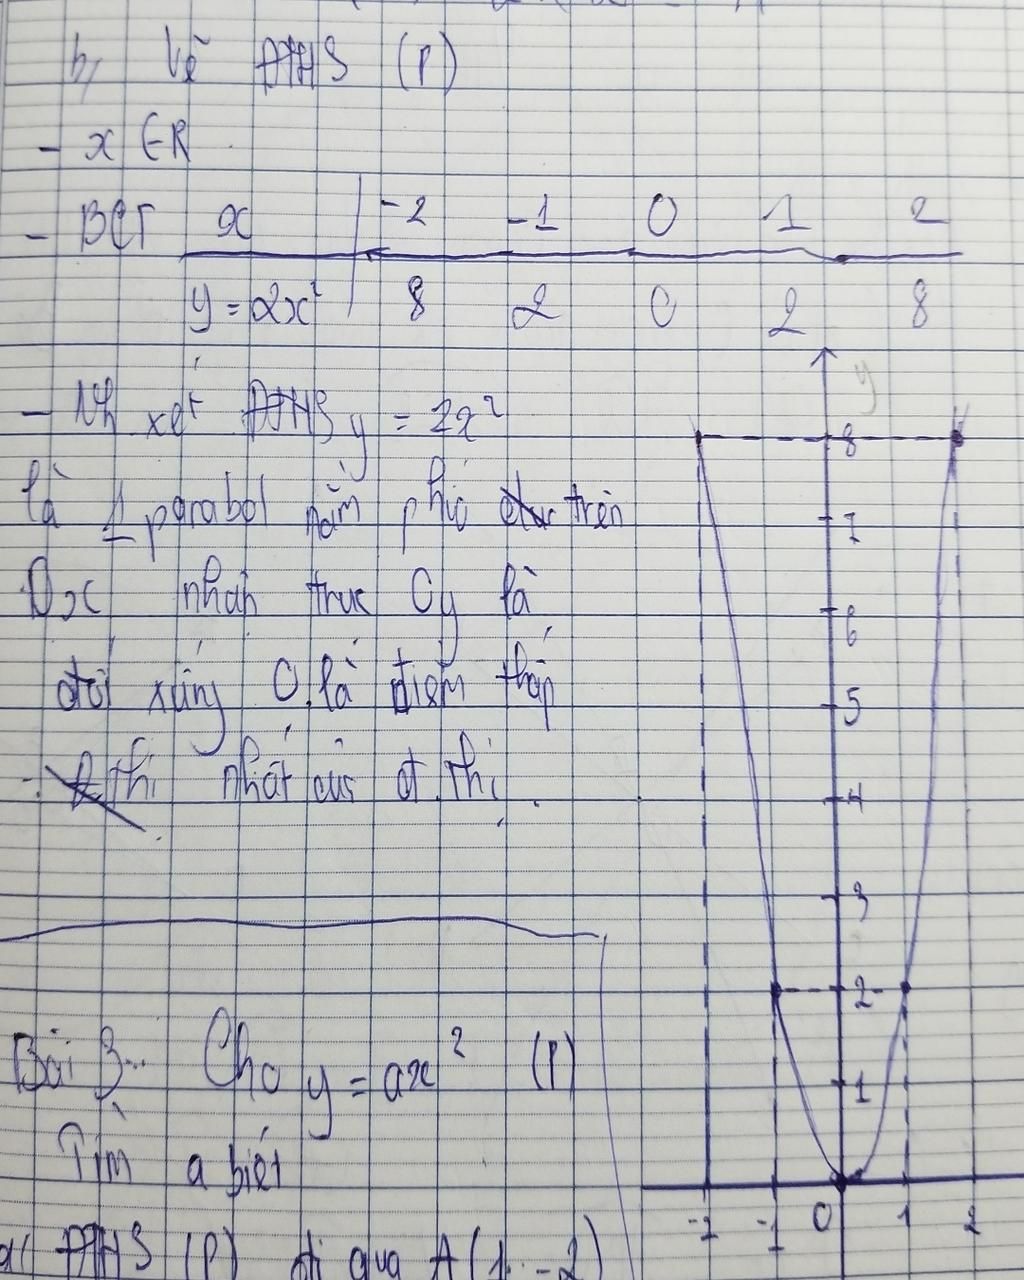 b, Vẽ ĐTHS (P)
- x ∈ R
- BGT x -2 -1 0 1 2
y = 2x² 8 2 0 2 8
- Nh xét ĐTHS y = 2x²
là 1 parabol nằm phía trên
Ox nhận trục Oy là
đối xứng O là điểm thấp
nhất của đt thị.
Bài 3.. Cho y = ax² (P)
Tìm a biết
a( ĐTHS (P) đi qua A(1, -2)
y
8
7
6
5
4
3
2
1
-2 -1 0 1 2